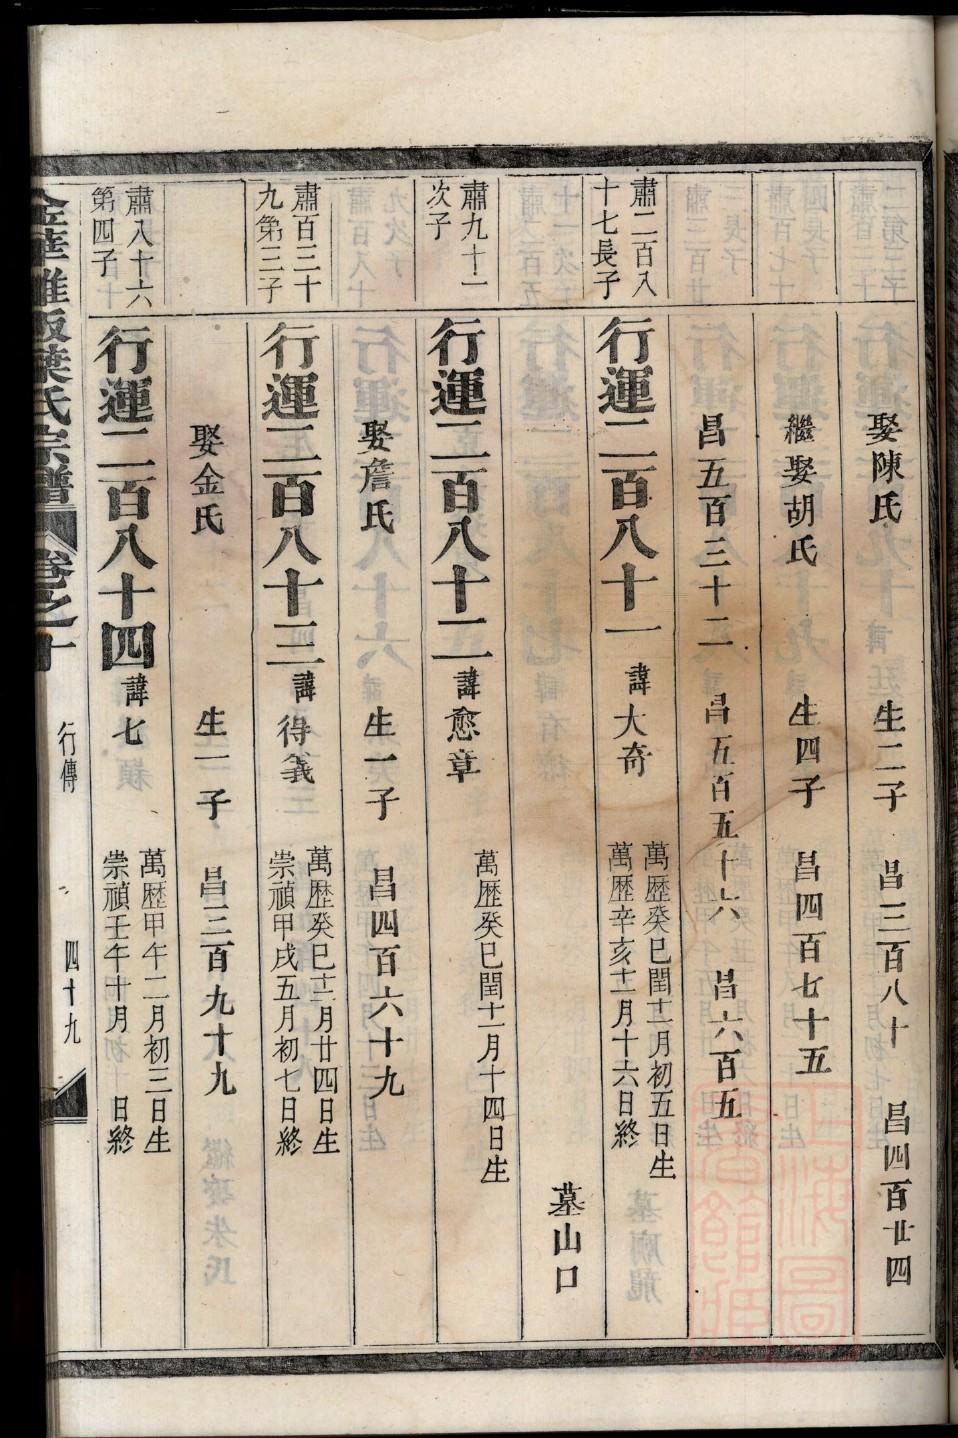 娶陳氏 生二子 昌三百八十 昌四百廿四
繼娶胡氏 生四子 昌四百七十五
昌五百三十二 昌五百五十六 昌六百五
肅二百八
十七長子
行運二百八十一 諱大奇
萬歷癸巳閏十一月初五日生
萬歷辛亥十二月十六日終
墓山口
肅九十一
次子
行運二百八十二 諱愈章
萬歷癸巳閏十一月十四日生
娶詹氏 生一子 昌四百六十九
肅百三十
九第三子
行運二百八十三 諱得義
萬歷癸巳十二月廿四日生
崇禎甲戌五月初七日終
娶金氏 生一子 昌三百九十九
肅八十六
第四子
行運二百八十四 諱七
萬歷甲午二月初三日生
崇禎壬午十月 日終
葉氏宗譜 卷之十 行傳 四十九